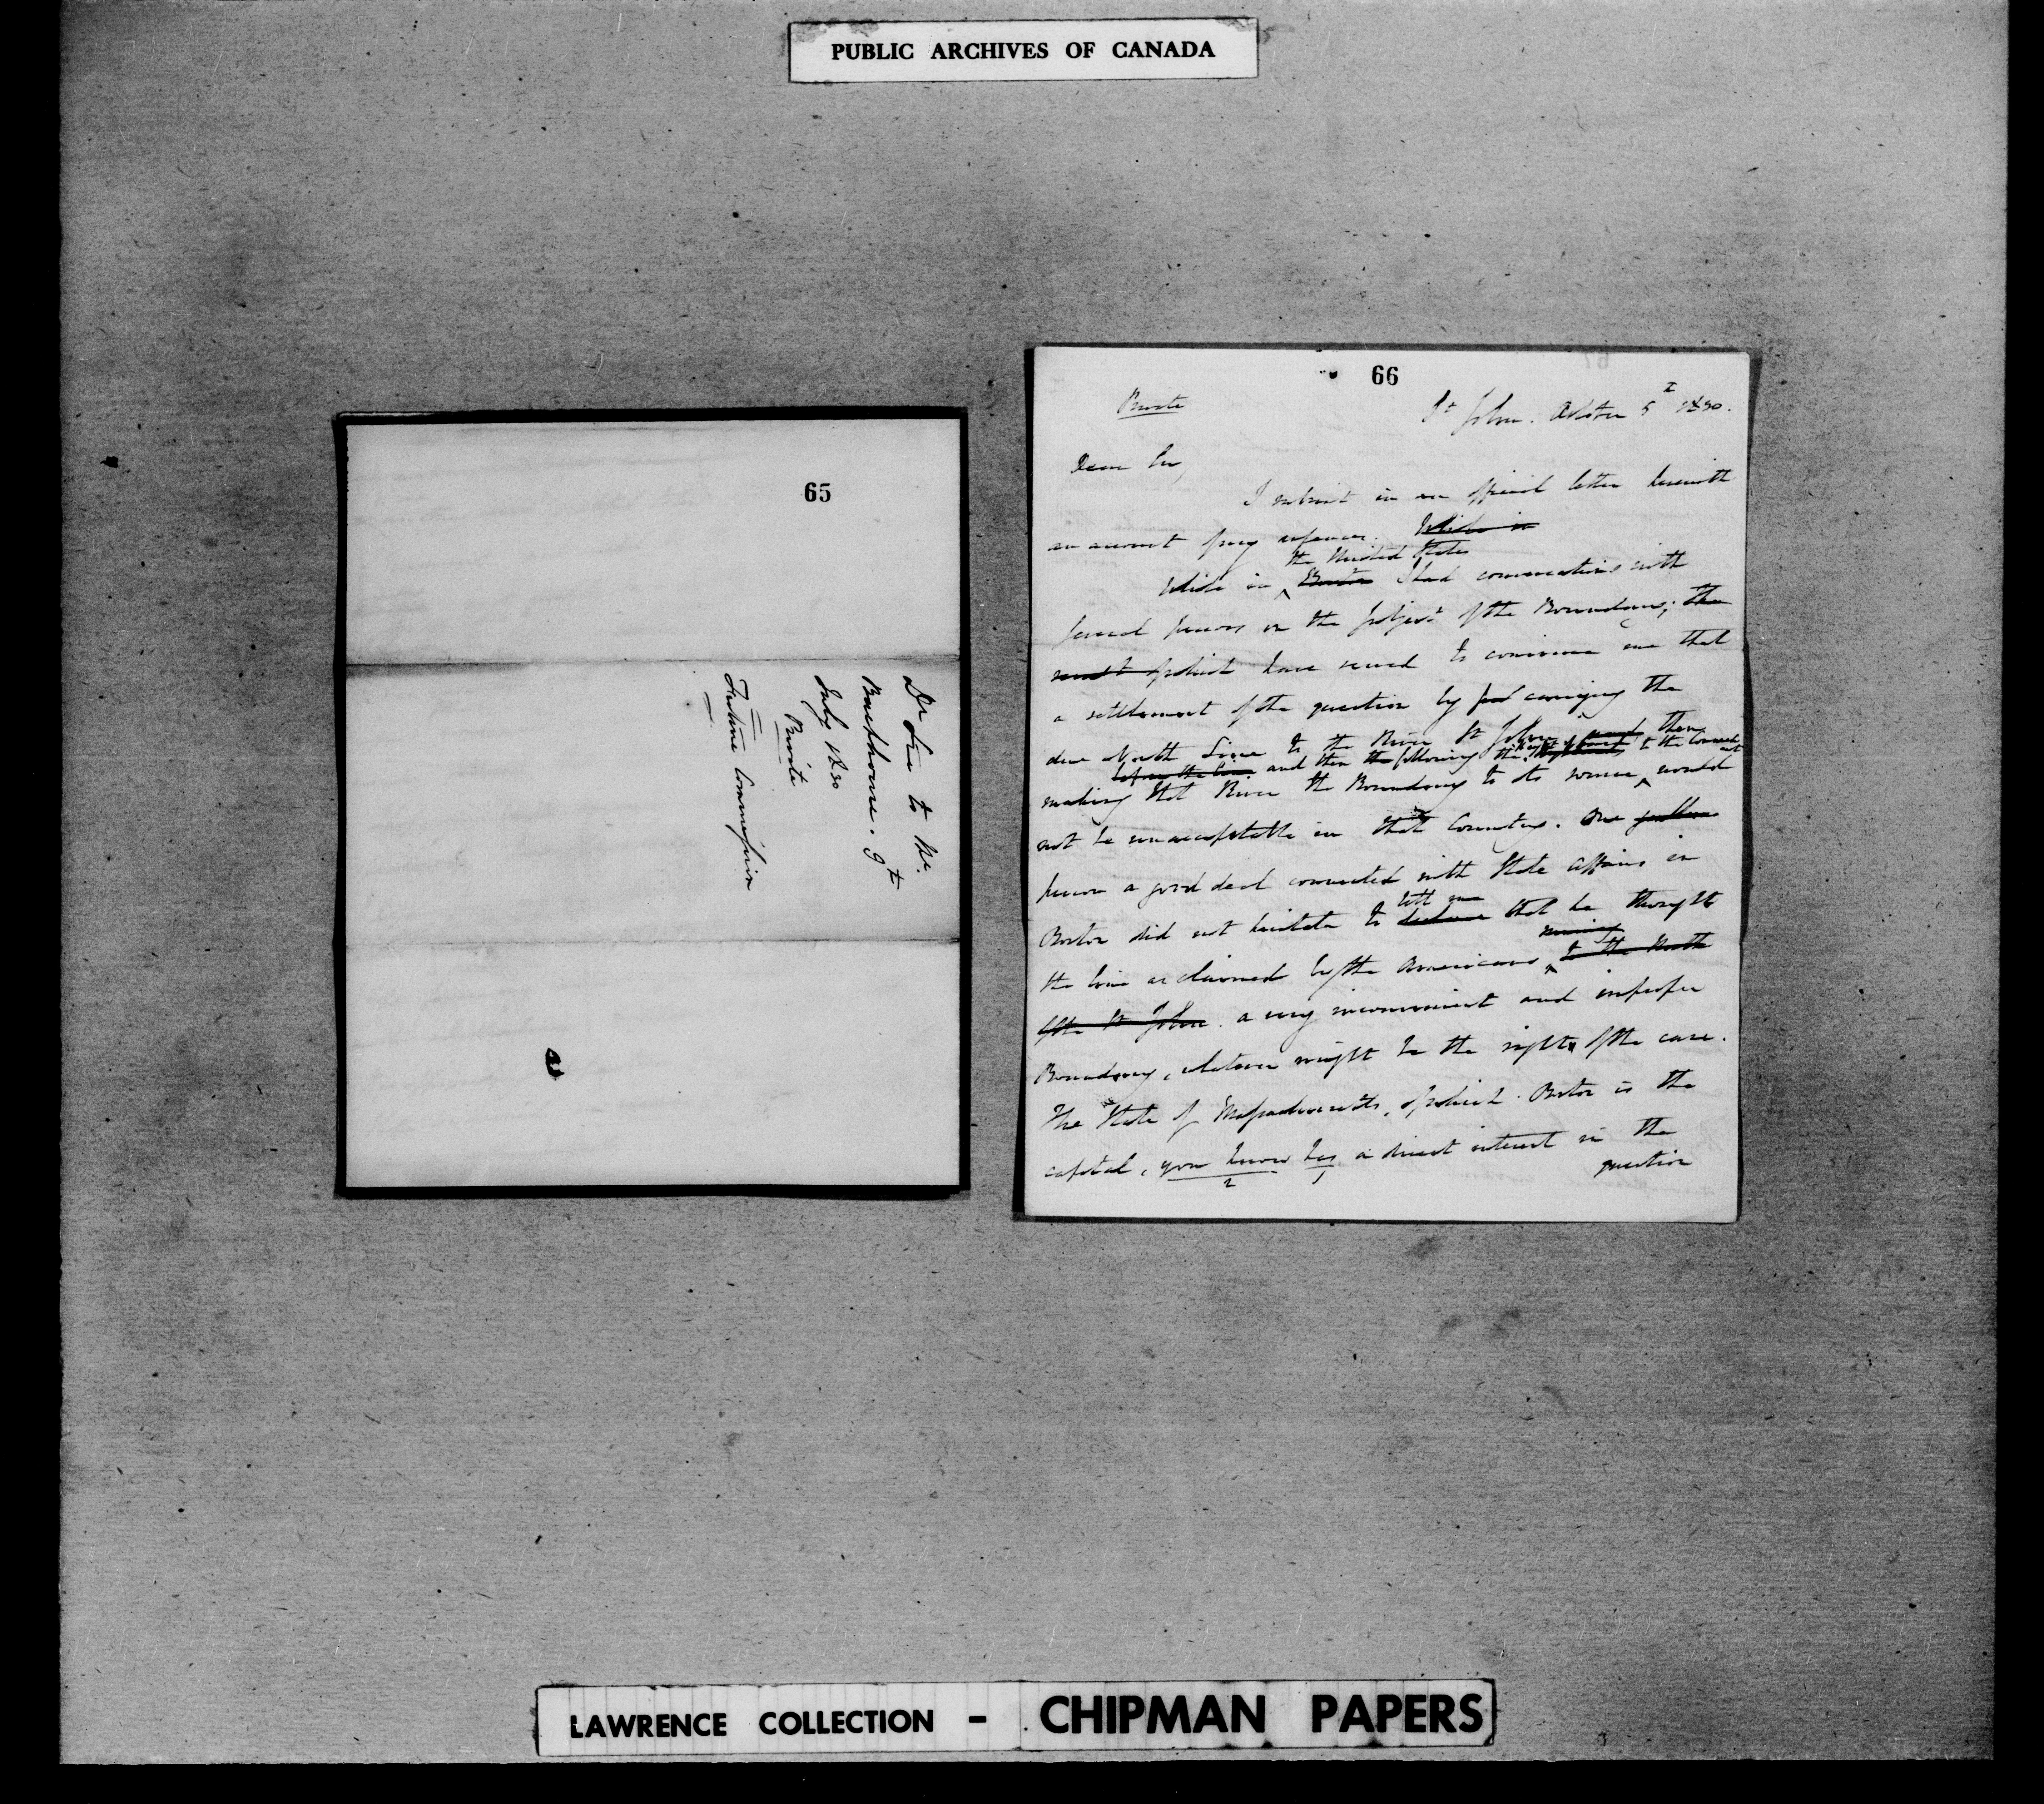 PUBLIC ARCHIVES OF CANADA
65
Dr to Mr.
Backhouse. 9th
July 1830
Private
Future Commission
66
Private
St John. October 5th 1830.
Dear Sir,
I submit in an official letter herewith
an account of my expenses. While in
the United States
While in Boston I had conversations with
several persons on the subject of the Boundary; the
result of which have served to convince me that
a settlement of the question by carrying the
due North Line to the River St John, and then
before the line and then the following the to the
making that River the Boundary to its source would
not be unacceptable in that Country. One gentleman
person a good deal connected with State affairs in
tell me
Boston did not hesitate to declare that he thought
running
the line as claimed by the Americans to the North
of the St John a very inconvenient and improper
Boundary, whatever might be the right of the case.
The State of Massachusetts, of which Boston is the
capital, you know has a direct interest in the
2 1
question
LAWRENCE COLLECTION - CHIPMAN PAPERS